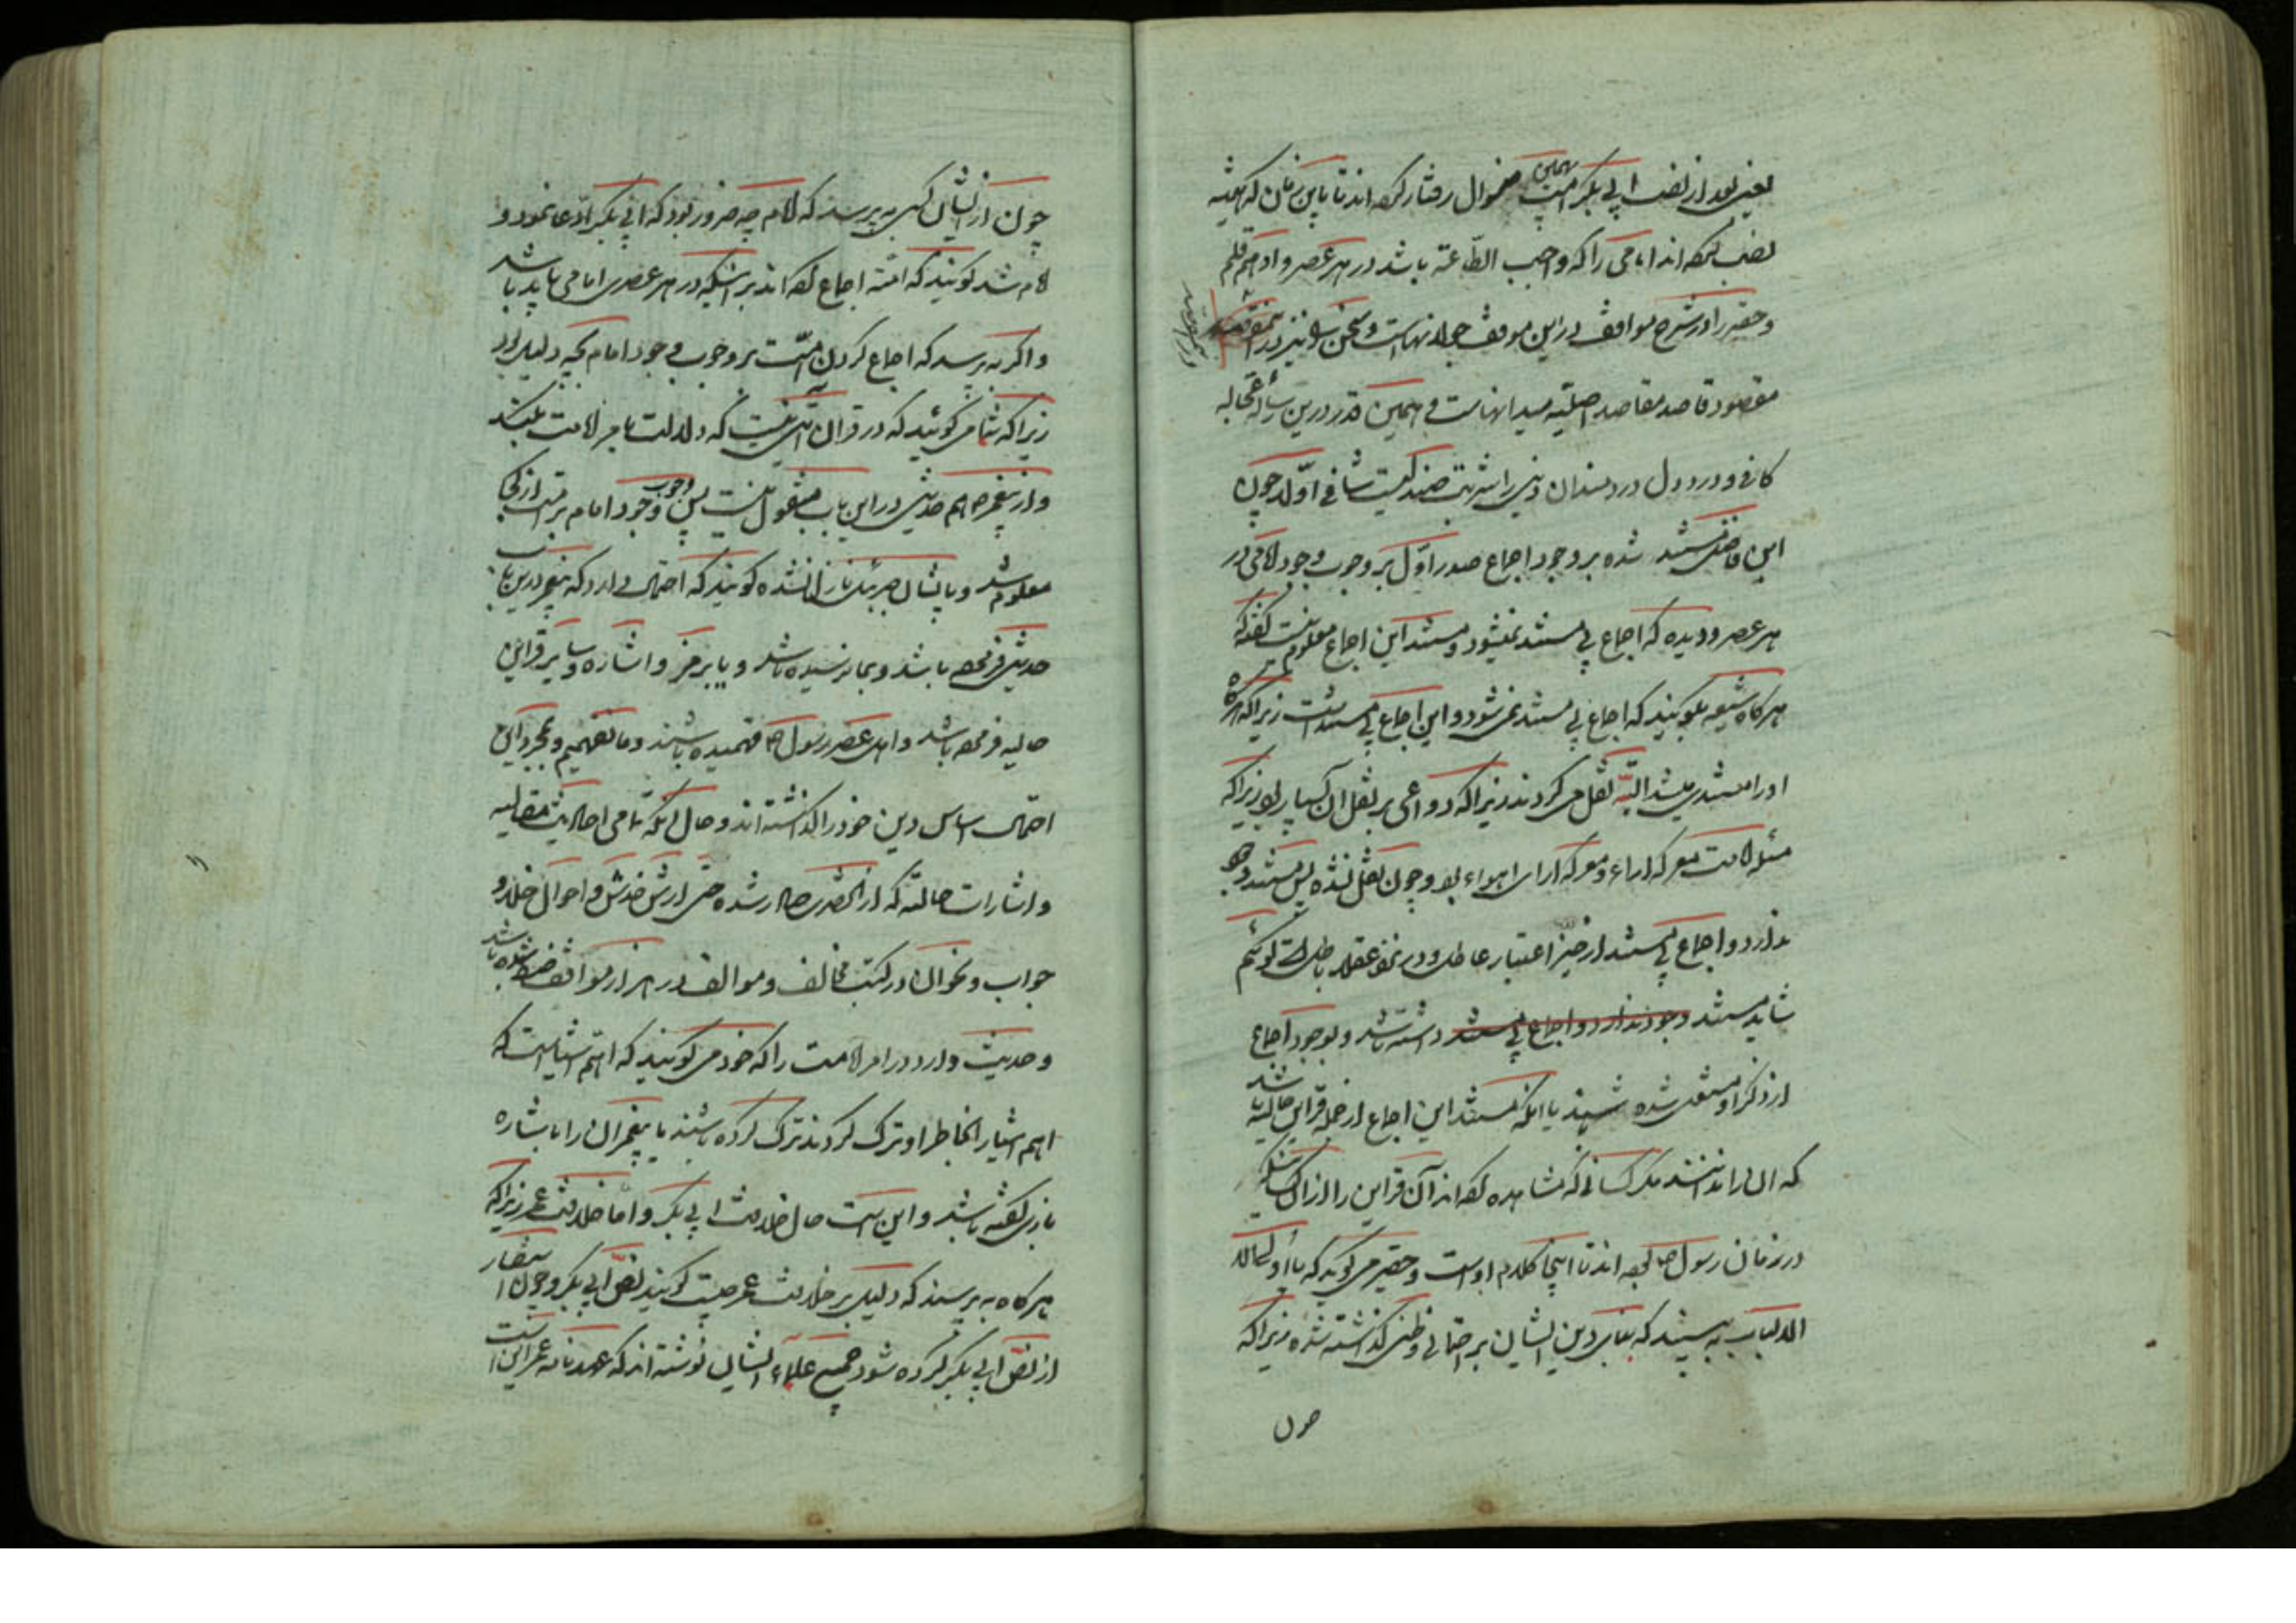 یعنی بعد از نصب ابی بکر امت بهمین منوال رفتار کرده اند تا باین زمان که همیشه
نصب کرده اند امامی را که واجب الطّاعة باشد در هر عصر و ادهم قلم
و حقیر را در شرح مواقف در این موقف جولانهاست و سخن
مقصود قاصد مقاصد اصلیه میدانهاست و همین قدر درین رساله عجاله
کافی و در درد دل دردمندان دینی را شربت چند کیست شافی اوّلا چون
این فاضل مستند شده بر وجود اجماع صدر اوّل بر وجوب وجود امامی در
هر عصر و دیده که اجماع بی مستند نمیشود و مستند این اجماع معلوم نیست گفته که
هرگاه شیعه بگویند که اجماع بی مستند نمی شود و این اجماع بی مستند است زیرا که هرگاه
او را مستندی میشد البتّه نقل می کردند زیرا که دواعی بر نقل آن بسیار بود زیرا که
مسئله امامت معرکه اراء و معرکه آرای اهواء بود و چون نقل نشده پس مستند وجود
ندارد و اجماع بی مستند از حیز اعتبار عاطل و در نزد عقلا باطل است گوئیم
شاید مستند وجود ندارد و اجماع بی مستند داشته باشد و بوجود اجماع
از ذکر او مستغنی شده باشند یا آنکه مستند این اجماع از جمله قراین حالیه باشد
که آن را ندانند مگر کسانی که مشاهده کرده اند آن قراین را از آن کسانیکه
در زمان رسول ص بوده اند تا اینجا کلام اوست و حقیر می گوید که یا اولی
الالباب به بینید که بنای دین ایشان بر احتمالی و ظنی گذاشته شده زیرا که
چون
چون از ایشان کسی به پرسد که امام چه ضرور بود که ابی بکر ادّعا نمود و
امام شد گویند که امّت اجماع کرده اند بر اینکه در هر عصری امامی باید باشد
و اگر به پرسد که اجماع کردن امّت بر وجوب وجود امام بچه دلیل بود
زیرا که شما می گوئید که در قران آیتی نیست که دلالت بامر امامت بکند
و از پیغمبر ص هم حدیثی در این باب منقول نیست پس وجوب وجود امام بر امّت از کجا
معلوم شد و بایشان جبرئیل نازل نشده گویند که احتمال دارد که پیغمبر درین باب
حدیثی فرموده باشد و بما نرسیده باشد و یا برمز و اشاره و سایر قراین
حالیه فرموده باشد و اهل عصر رسول ص فهمیده باشند و ما نفهمیم و بمجرد این
احتمال اساس دین خود را گذاشته اند و حال آنکه تمامی احادیث مقالیه
و اشارات حالیّه که از آنحضرت صادر شده حتی ارش خدش و احوال خلا و
جواب و نحو آن در کتب مخالف و مؤالف در هزار مواقف ضبط شده باشد
و حدیث وارد در امر امامت را که خود می گویند که اهمّ اشیا است که
اهم اشیا را بخاطر او ترک کردند ترک کرده باشند یا پیغمبر آن را باشاره
بازی گفته باشد و این است حال خلافت ابی بکر و امّا خلافت عمر زیرا که
هرگاه به پرسند که دلیل بر خلافت عمر چیست گویند نصّ ابی بکر و چون استفسار
از نصّ ابی بکر کرده شود جمیع علمآء ایشان نوشته اند که عهدنامه عمر این است